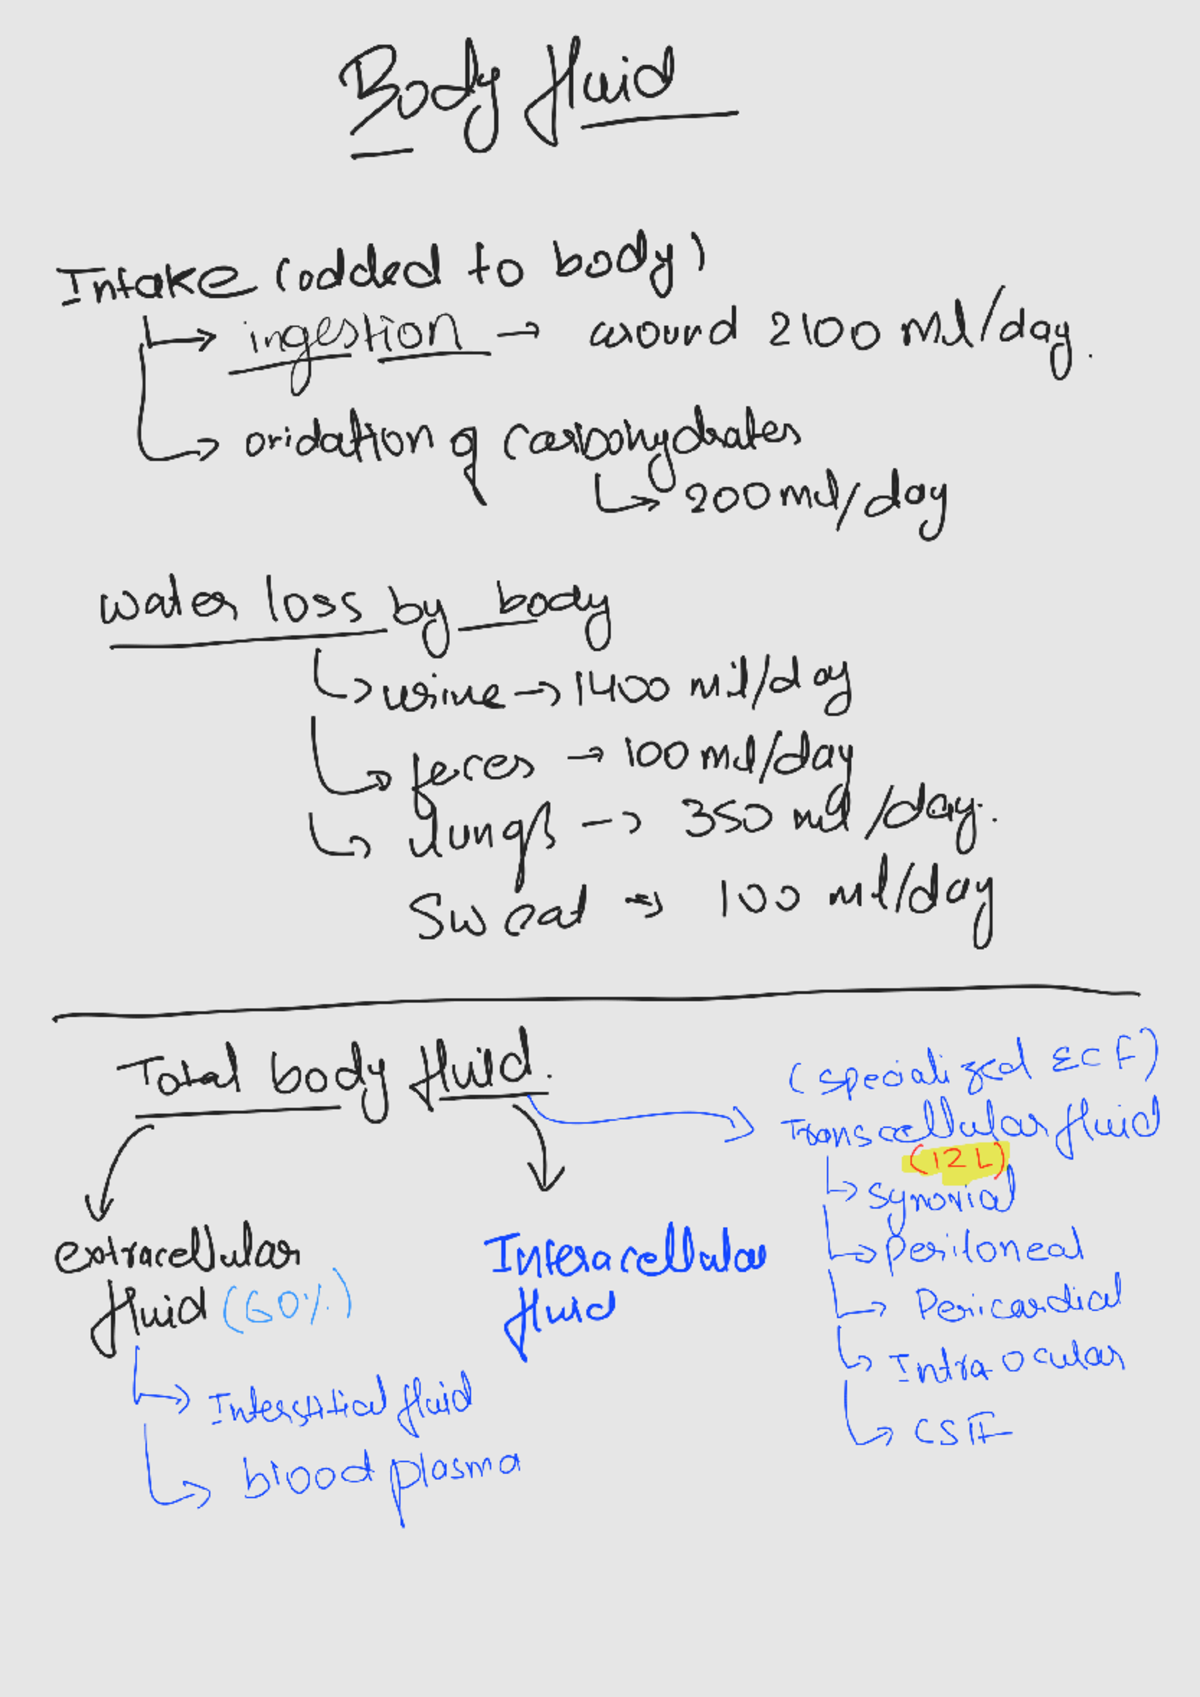 Body fluid
Intake (added to body)
→ ingestion → around 2100 ml/day.
→ oxidation of carbohydrates
→ 200 ml/day
water loss by body
→ urine → 1400 ml/day
→ feces → 100 ml/day
→ lungs → 350 ml/day.
Sweat → 100 ml/day
Total body fluid.
(specialized ECF)
Transcellular fluid
(12L)
→ synovial
→ Peritoneal
→ Pericardial
→ Intra ocular
→ CSF
extracellular
fluid (60%)
→ Interstitial fluid
→ blood plasma
Interacellular
fluid